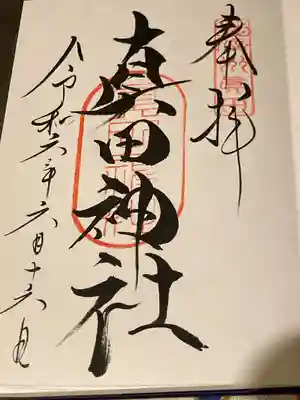 奉拝
真田神社
令和六年六月十六日